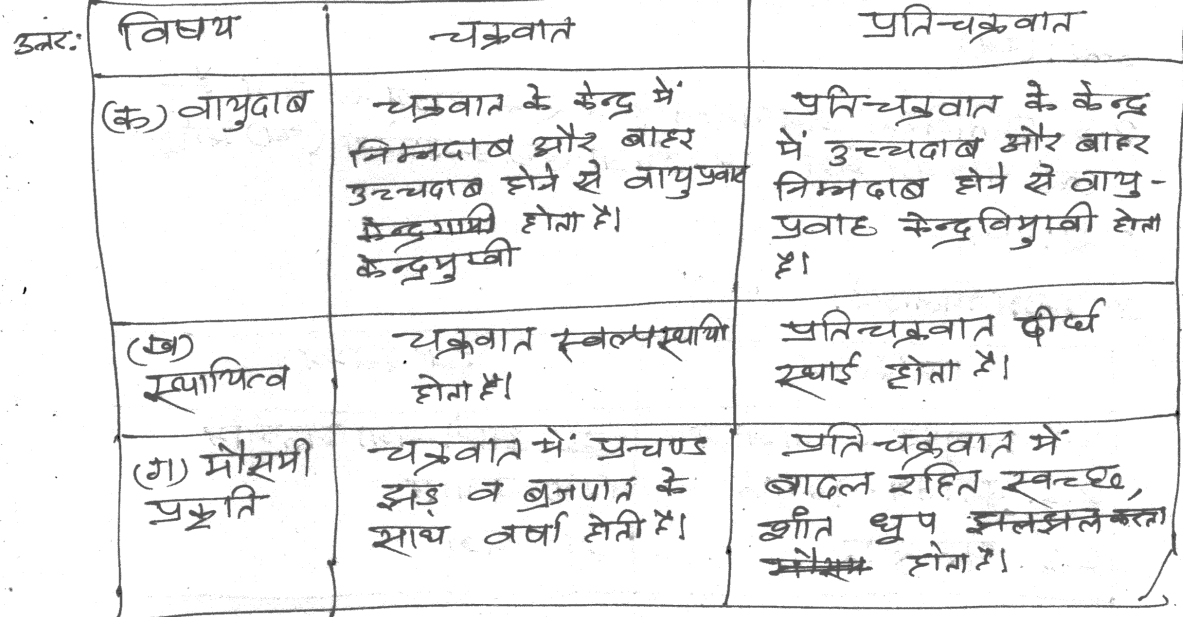 उत्तर: विषय चक्रवात प्रतिचक्रवात
(क) वायुदाब
चक्रवात के केन्द्र में
निम्नदाब और बाहर
उच्चदाब होने से वायुप्रवाह
केन्द्रगामी होता है।
केन्द्रमुखी
प्रतिचक्रवात के केन्द्र
में उच्चदाब और बाहर
निम्नदाब होने से वायु-
प्रवाह केन्द्रविमुखी होता
है।
(ख)
स्थायित्व
चक्रवात स्वल्पस्थायी
होता है।
प्रतिचक्रवात दीर्घ
स्थाई होता है।
(ग) मौसमी
प्रकृति
चक्रवात में प्रचण्ड
झड़ व ब्रजपात के
साथ वर्षा होती है।
प्रतिचक्रवात में
बादल रहित स्वच्छ,
शांत धूप झलझल करता
मौसम होता है।